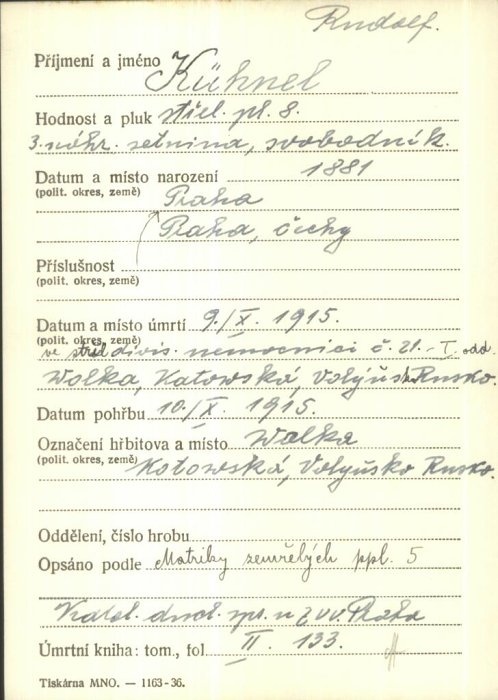 Rudolf.
Příjmení a jméno Kühnel
Hodnost a pluk střel. pl. 8.
3. náhr. setnina, svobodník.
Datum a místo narození 1881
(polit. okres, země) Praha
Praha, Čechy
Příslušnost
(polit. okres, země)
Datum a místo úmrtí 9./X. 1915.
(polit. okres, země)
ve střel. divis. nemocnici č. 21. - I. odd.
Wolka, Katowská, Volyňsko Rusko.
Datum pohřbu 10./X. 1915.
Označení hřbitova a místo Wolka
(polit. okres, země) Kotowská, Volyňsko Rusko.
Oddělení, číslo hrobu
Opsáno podle Matriky zemřelých ppl. 5
duch. spr. u ZVV. Praha
Úmrtní kniha: tom., fol. II. 133.
Tiskárna MNO. — 1163-36.